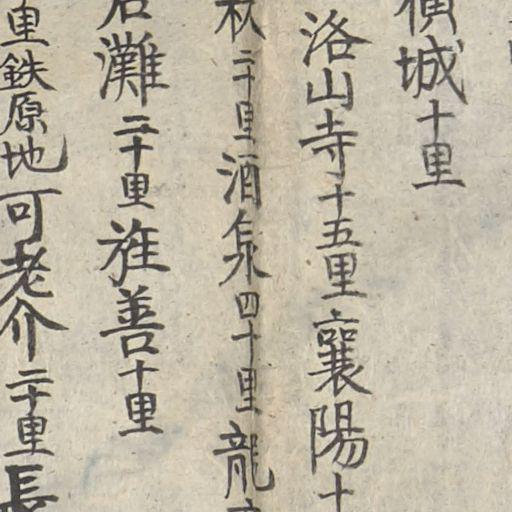 橫城十里
洛山寺十五里襄陽十
二十里酒泉四十里龍
灘二十里旌善十里
里鉄原地可老介二十里長